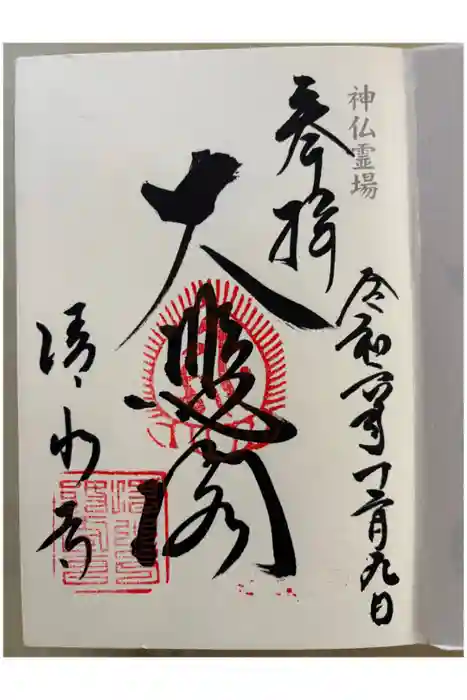 神仏霊場
奉拝
令和六年十二月九日
大悲閣
清水寺